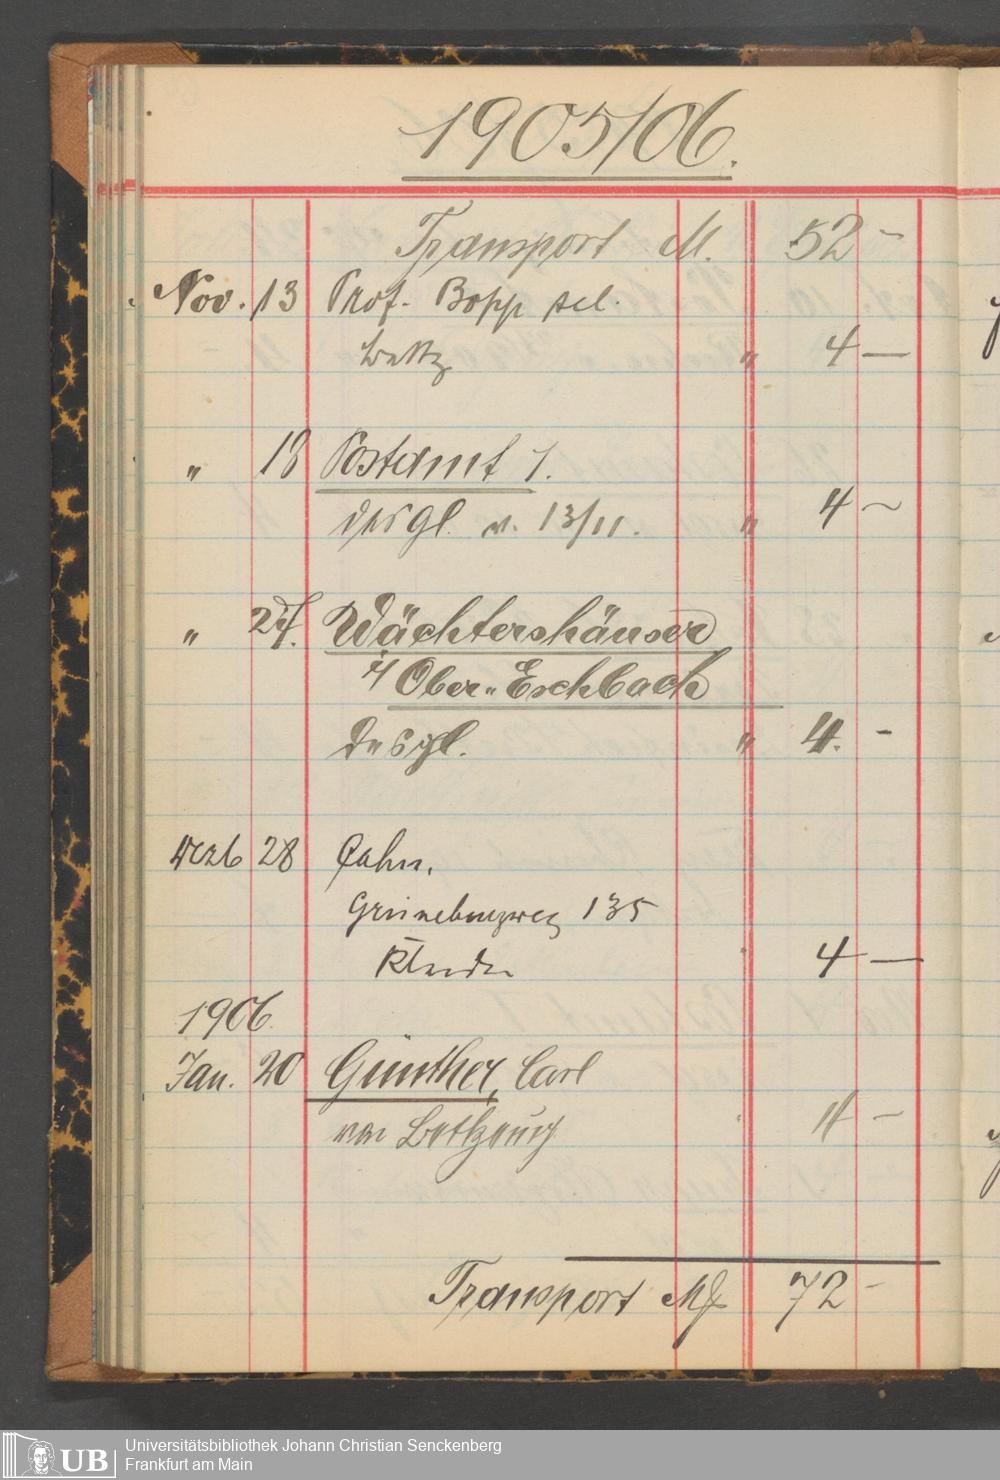 1905/06.
Transport M. 52 –
Nov. 13 Prof. Bopp sel.
" 4 —
" 18 Postamt 1.
desgl. v. 13/11. " 4 ~
" 27. Wächtershäuser
i/ Ober-Eschbach
desgl. " 4. -
Dezb 28 Cahn,
Grüneburgweg 135
4 —
1906.
Jan. 20 Günther, Carl
4 –
Transport M 72 -
UB
Universitätsbibliothek Johann Christian Senckenberg
Frankfurt am Main